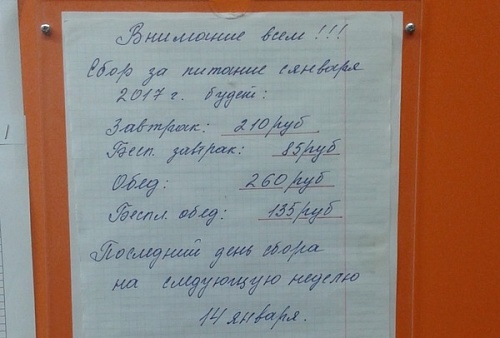 Внимание всем!!!
Сбор за питание с января
2017 г. будет:
Завтрак: 210 руб
Бесп. завтрак: 85 руб
Обед: 260 руб
Беспл. обед: 135 руб
Последний день сбора
на следующую неделю
14 января.